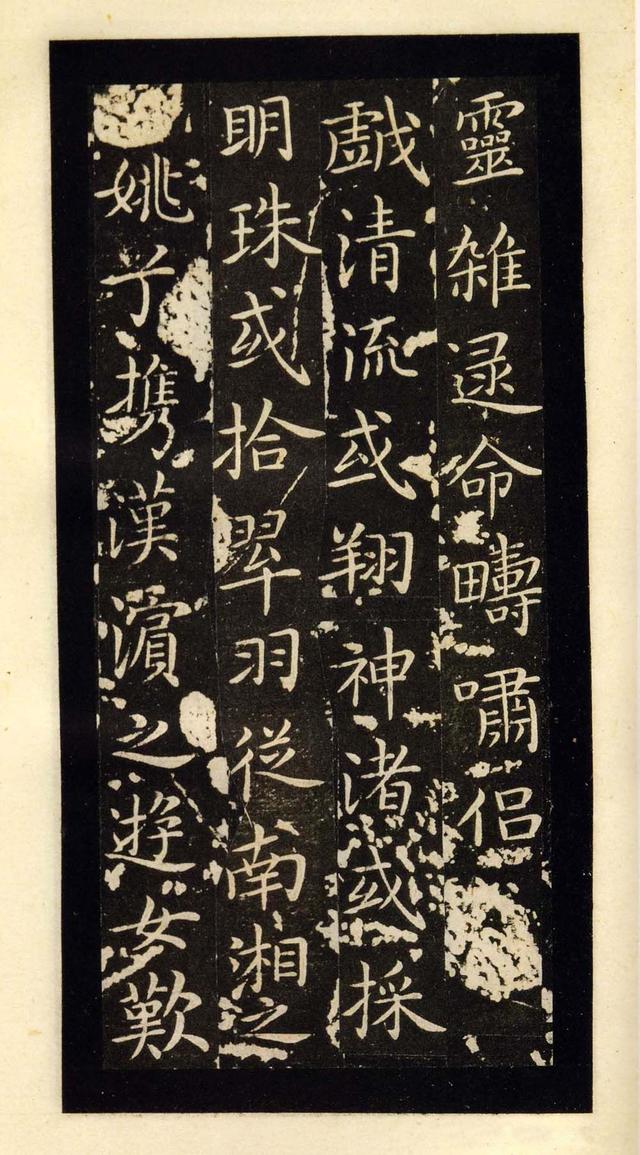 靈雜遝命疇嘯侶
戲清流或翔神渚或採
明珠或拾翠羽從南湘之
姚兮携漢濱之遊女歎